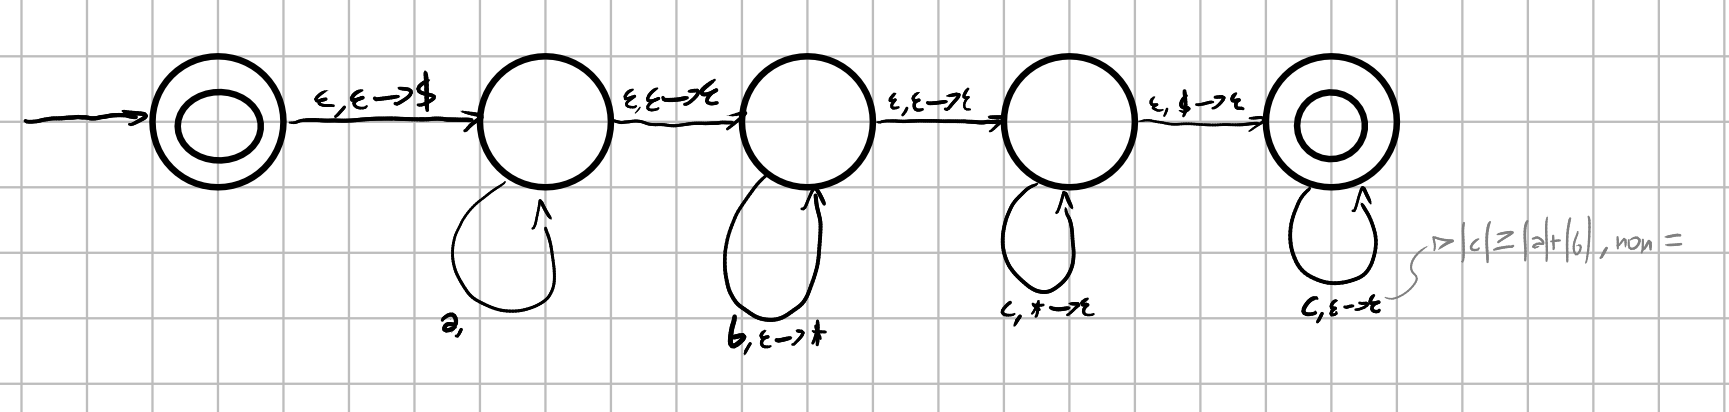 ε, ε → $
ε, ε → ε
ε, ε → ε
ε, $ → ε
a,
b, ε → *
c, * → ε
c, ε → ε
|c| ≥ |a|+|b|, non =